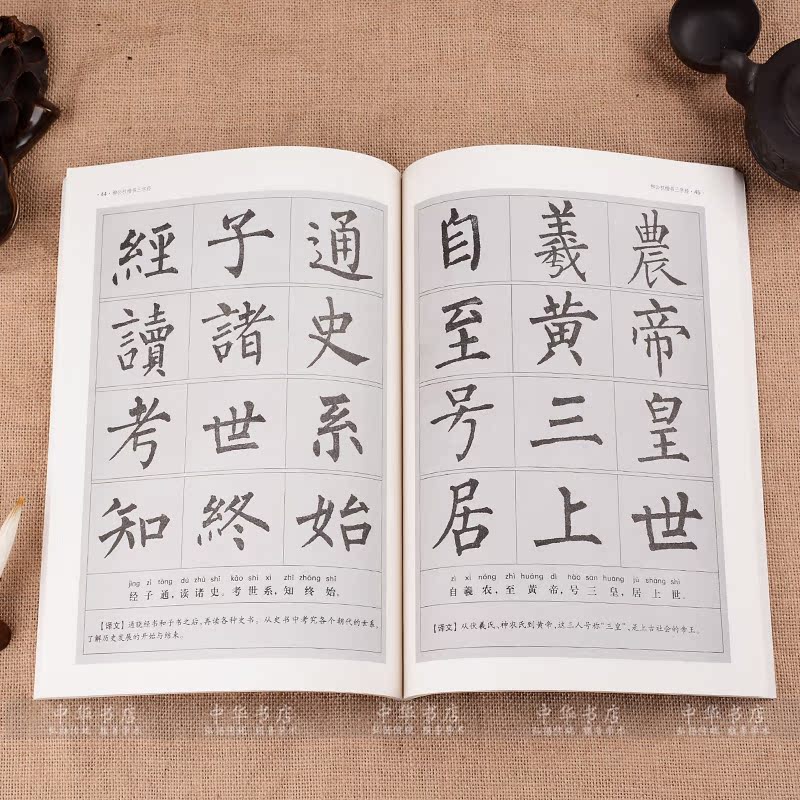 ·44·柳公权楷书三字经
經子通
讀諸史
考世系
知終始
jīng zǐ tōng dú zhū shǐ kǎo shì xì zhī zhōng shǐ
经子通，读诸史。考世系，知终始。
【译文】通晓经书和子书之后，再读各种史书。从史书中考究各个朝代的世系，
了解历史发展的开始与结束。
柳公权楷书三字经·45·
自羲農
至黄帝
号三皇
居上世
zì xī nóng zhì huáng dì hào sān huáng jū shàng shì
自羲农，至黄帝，号三皇，居上世。
【译文】从伏羲氏、神农氏到黄帝，这三人号称“三皇”，是上古社会的帝王。
中华书店 中华书店 中华书店 中华书店 中华书店